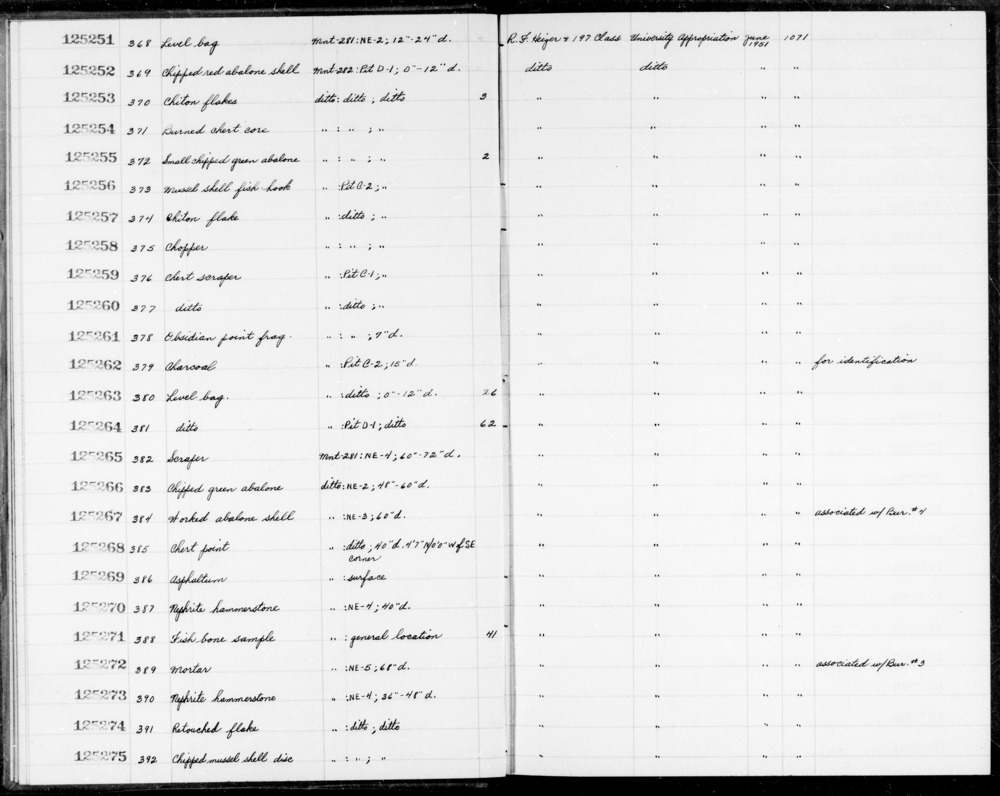 125251 368 Level bag Mnt-281: NE-2; 12"-24" d. R. F. Heizer & 197 Class University Appropriation June 1951 1071
125252 369 Chipped red abalone shell Mnt-282: Pit D-1; 0"-12" d. ditto ditto " "
125253 370 Chiton flakes ditto: ditto; ditto 3 " " " "
125254 371 Burned chert core " : " ; " " " " "
125255 372 Small chipped green abalone " : " ; " 2 " " " "
125256 373 Mussel shell fish-hook " : Pit C-2; " " " " "
125257 374 Chiton flake " : ditto; " " " " "
125258 375 Chopper " : " ; " " " " "
125259 376 Chert scraper " : Pit C-1; " " " " "
125260 377 ditto " : ditto; " " " " "
125261 378 Obsidian point frag. " : " ; 7" d. " " " "
125262 379 Charcoal " : Pit C-2; 15" d. " " " " for identification
125263 380 Level bag. " : ditto; 0"-12" d. 26 " " " "
125264 381 ditto " : Pit D-1; ditto 62 " " " "
125265 382 Scraper Mnt-281: NE-4; 60"-72" d. " " " "
125266 383 Chipped green abalone ditto: NE-2; 48"-60" d. " " " "
125267 384 Worked abalone shell " : NE-3; 60" d. " " " " associated w/ Bur. #4
125268 385 Chert point " : ditto; 40" d. 4'7" N/0'0" W of SE corner " " " "
125269 386 Asphaltum " : surface " " " "
125270 387 Nephrite hammerstone " : NE-4; 40" d. " " " "
125271 388 Fish bone sample " : general location 41 " " " "
125272 389 Mortar " : NE-5; 68" d. " " " " associated w/ Bur. #3
125273 390 Nephrite hammerstone " : NE-4; 36"-48" d. " " " "
125274 391 Retouched flake " : ditto; ditto " " " "
125275 392 Chipped mussel shell disc " : " ; " " " " "